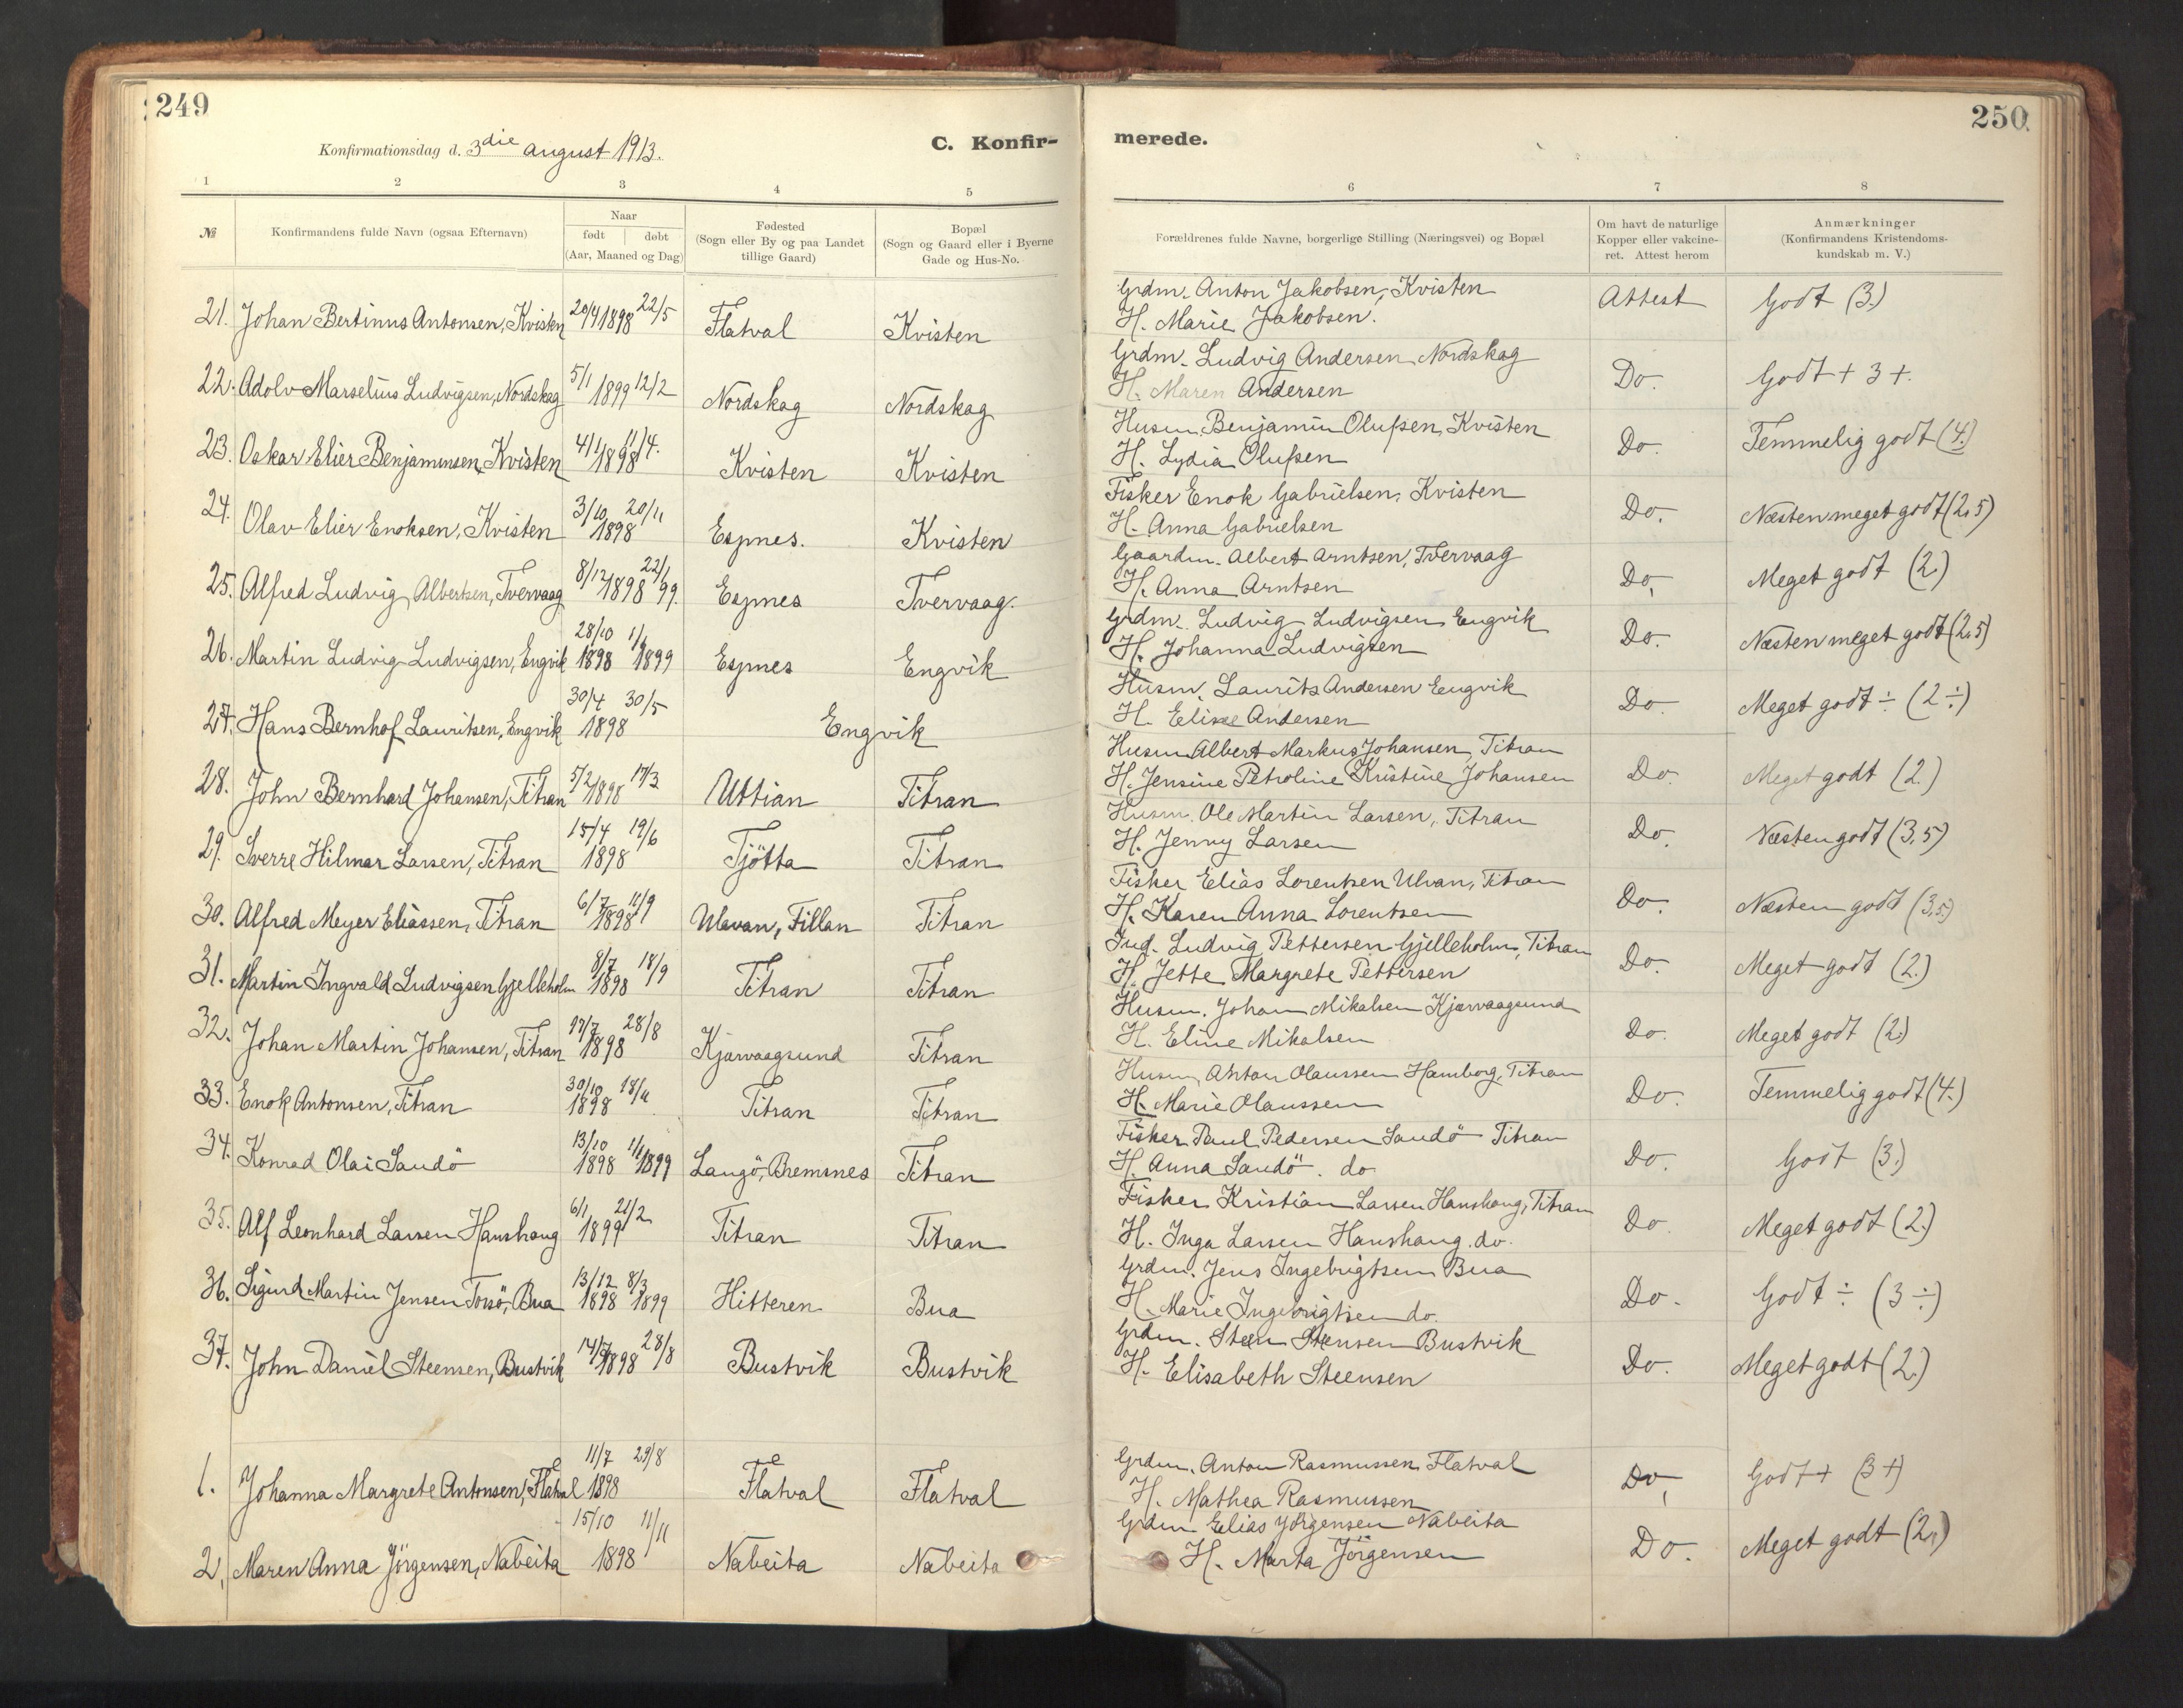 249
250
Konfirmationsdag d. 3die august 1913.
C. Konfir-
merede.
1 2 3 4 5 6 7 8
№ Konfirmandens fulde Navn (ogsaa Efternavn) Naar født døbt (Aar, Maaned og Dag) Fødested (Sogn eller By og paa Landet tillige Gaard) Bopæl (Sogn og Gaard eller i Byerne Gade og Hus-No. Forældrenes fulde Navne, borgerlige Stilling (Næringsvei) og Bopæl Om havt de naturlige Kopper eller vakcineret. Attest herom Anmærkninger (Konfirmandens Kristendomskundskab m. V.)
21. Johan Bertinus Antonsen, Kvisten 20/4 1898 22/5 Flatval Kvisten Grdm. Anton Jakobsen, Kvisten
H. Marie Jakobsen. Attest Godt (3.)
22. Adolv Marselius Ludvigsen, Nordskag 5/1 1899 12/2 Nordskag Nordskag Grdm. Ludvig Andersen Nordskag
H. Maren Andersen Do. Godt + 3+.
23. Oskar Elier Benjaminsen, Kvisten 4/1 1898 11/4. Kvisten Kvisten Husm. Benjamin Olufsen, Kvisten
H. Lydia Olufsen Do. Temmelig godt (4.)
24. Olav Elier Enoksen, Kvisten 3/10 1898 20/11 Espnes. Kvisten Fisker Enok Gabrielsen, Kvisten
H. Anna Gabrielsen Do. Næsten meget godt (2,5)
25. Alfred Ludvig Albertsen, Tvervaag 8/12 1898 22/1 99. Espnes Tvervaag. Gaardm. Albert Arntsen, Tvervaag
H. Anna Arntsen Do. Meget godt (2.)
26. Martin Ludvig Ludvigsen, Engvik 28/10 1898 1/1 1899 Espnes Engvik Grdm. Ludvig Ludvigsen Engvik
H. Johanna Ludvigsen Do. Næsten meget godt (2,5)
27. Hans Bernhof Lauritsen, Engvik 30/4 1898 30/5 Engvik Husm. Laurits Andersen Engvik
H. Elise Andersen Do. Meget godt ÷ (2 ÷)
28. John Bernhard Johansen, Titran 5/2 1898 17/3 Uttian Titran Husm. Albert Markus Johansen, Titran
H. Jensine Petroline Kristine Johansen Do. Meget godt (2.)
29. Sverre Hilmar Larsen, Titran 15/4 1898 19/6 Tjötta Titran Husm. Ole Martin Larsen, Titran
H. Jenny Larsen Do. Næsten godt (3,5)
30. Alfred Meyer Eliassen, Titran 6/7 1898 11/9 Ulavan, Fillan Titran Fisker Elias Lorentsen Ulvan, Titran
H. Karen Anna Lorentsen Do. Næsten godt (3,5)
31. Martin Ingvald Ludvigsen Gjelleholm 8/7 1898 18/9 Titran Titran Ind. Ludvig Pettersen Gjelleholm, Titran
H. Jette Margrete Pettersen Do. Meget godt (2.)
32. Johan Martin Johansen, Titran 17/7 1898 28/8 Kjørvaagsund Titran Husm. Johan Mikalsen Kjørvaagsund
H. Eline Mikalsen Do. Meget godt (2)
33. Enok Antonsen, Titran 30/10 1898 18/11 Titran Titran Husm. Anton Olaussen Hamborg, Titran
H. Marie Olaussen Do. Temmelig godt (4.)
34. Konrad Olai Sandö 13/10 1898 1/1 1899 Langö, Bremsnes Titran Fisker Paul Pedersen Sandö Titran
H. Anna Sandö. do Do. Godt (3.)
35. Alf Leonhard Larsen Hanshaug 6/1 1899 21/2 Titran Titran Fisker Kristian Larsen Hanshaug, Titran
H. Inga Larsen Hanshaug. do. Do Meget godt (2.)
36. Sigurd Martin Jensen Torsö, Bua 13/12 1898 8/3 1899 Hitteren Bua Grdm. Jens Ingebrigtsen Bua
H. Marie Ingebrigtsen do. Do. Godt ÷ (3 ÷)
37. John Daniel Steensen, Bustvik 14/7 1898 28/8 Bustvik Bustvik Grdm. Steen Steensen Bustvik
H. Elisabeth Steensen Do. Meget godt (2.)
1. Johanna Margrete Antonsen, Flatval 11/7 1898 29/8 Flatval Flatval Grdm. Anton Rasmussen Flatval
H. Mathea Rasmussen Do. Godt + (3+)
2. Maren Anna Jörgensen, Nabeita 15/10 1898 11/11 Nabeita Nabeita Grdm Elias Jörgensen Nabeita
H. Marta Jörgensen Do. Meget godt (2.)